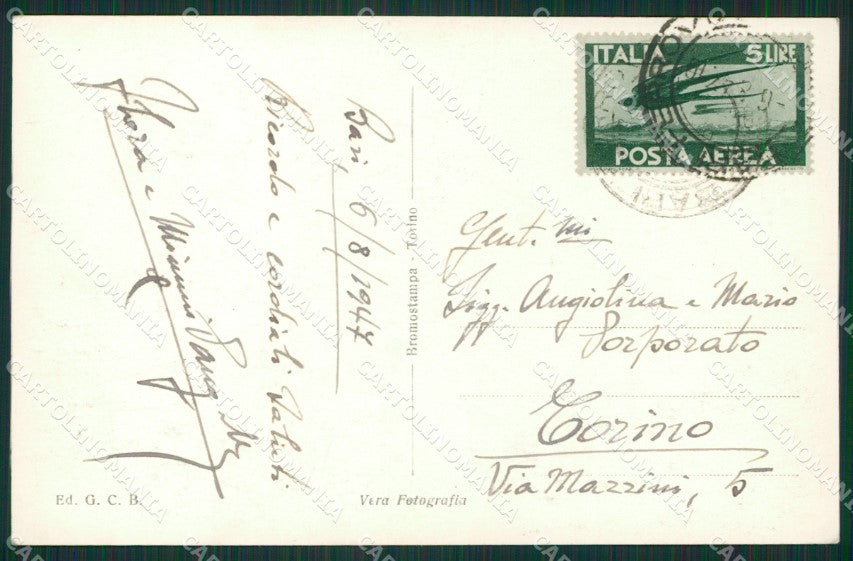 ITALIA 5 LIRE
POSTA AEREA
Bari, 6/8/1947
Ricordo e cordiali saluti
e Mimmi
Bromostampa - Torino
Gent. mi
Sigg. Angiolina e Mario
Porporato
Torino
Via Mazzini, 5
Ed. G. C. B.
Vera Fotografia
CARTOLINOMANIA